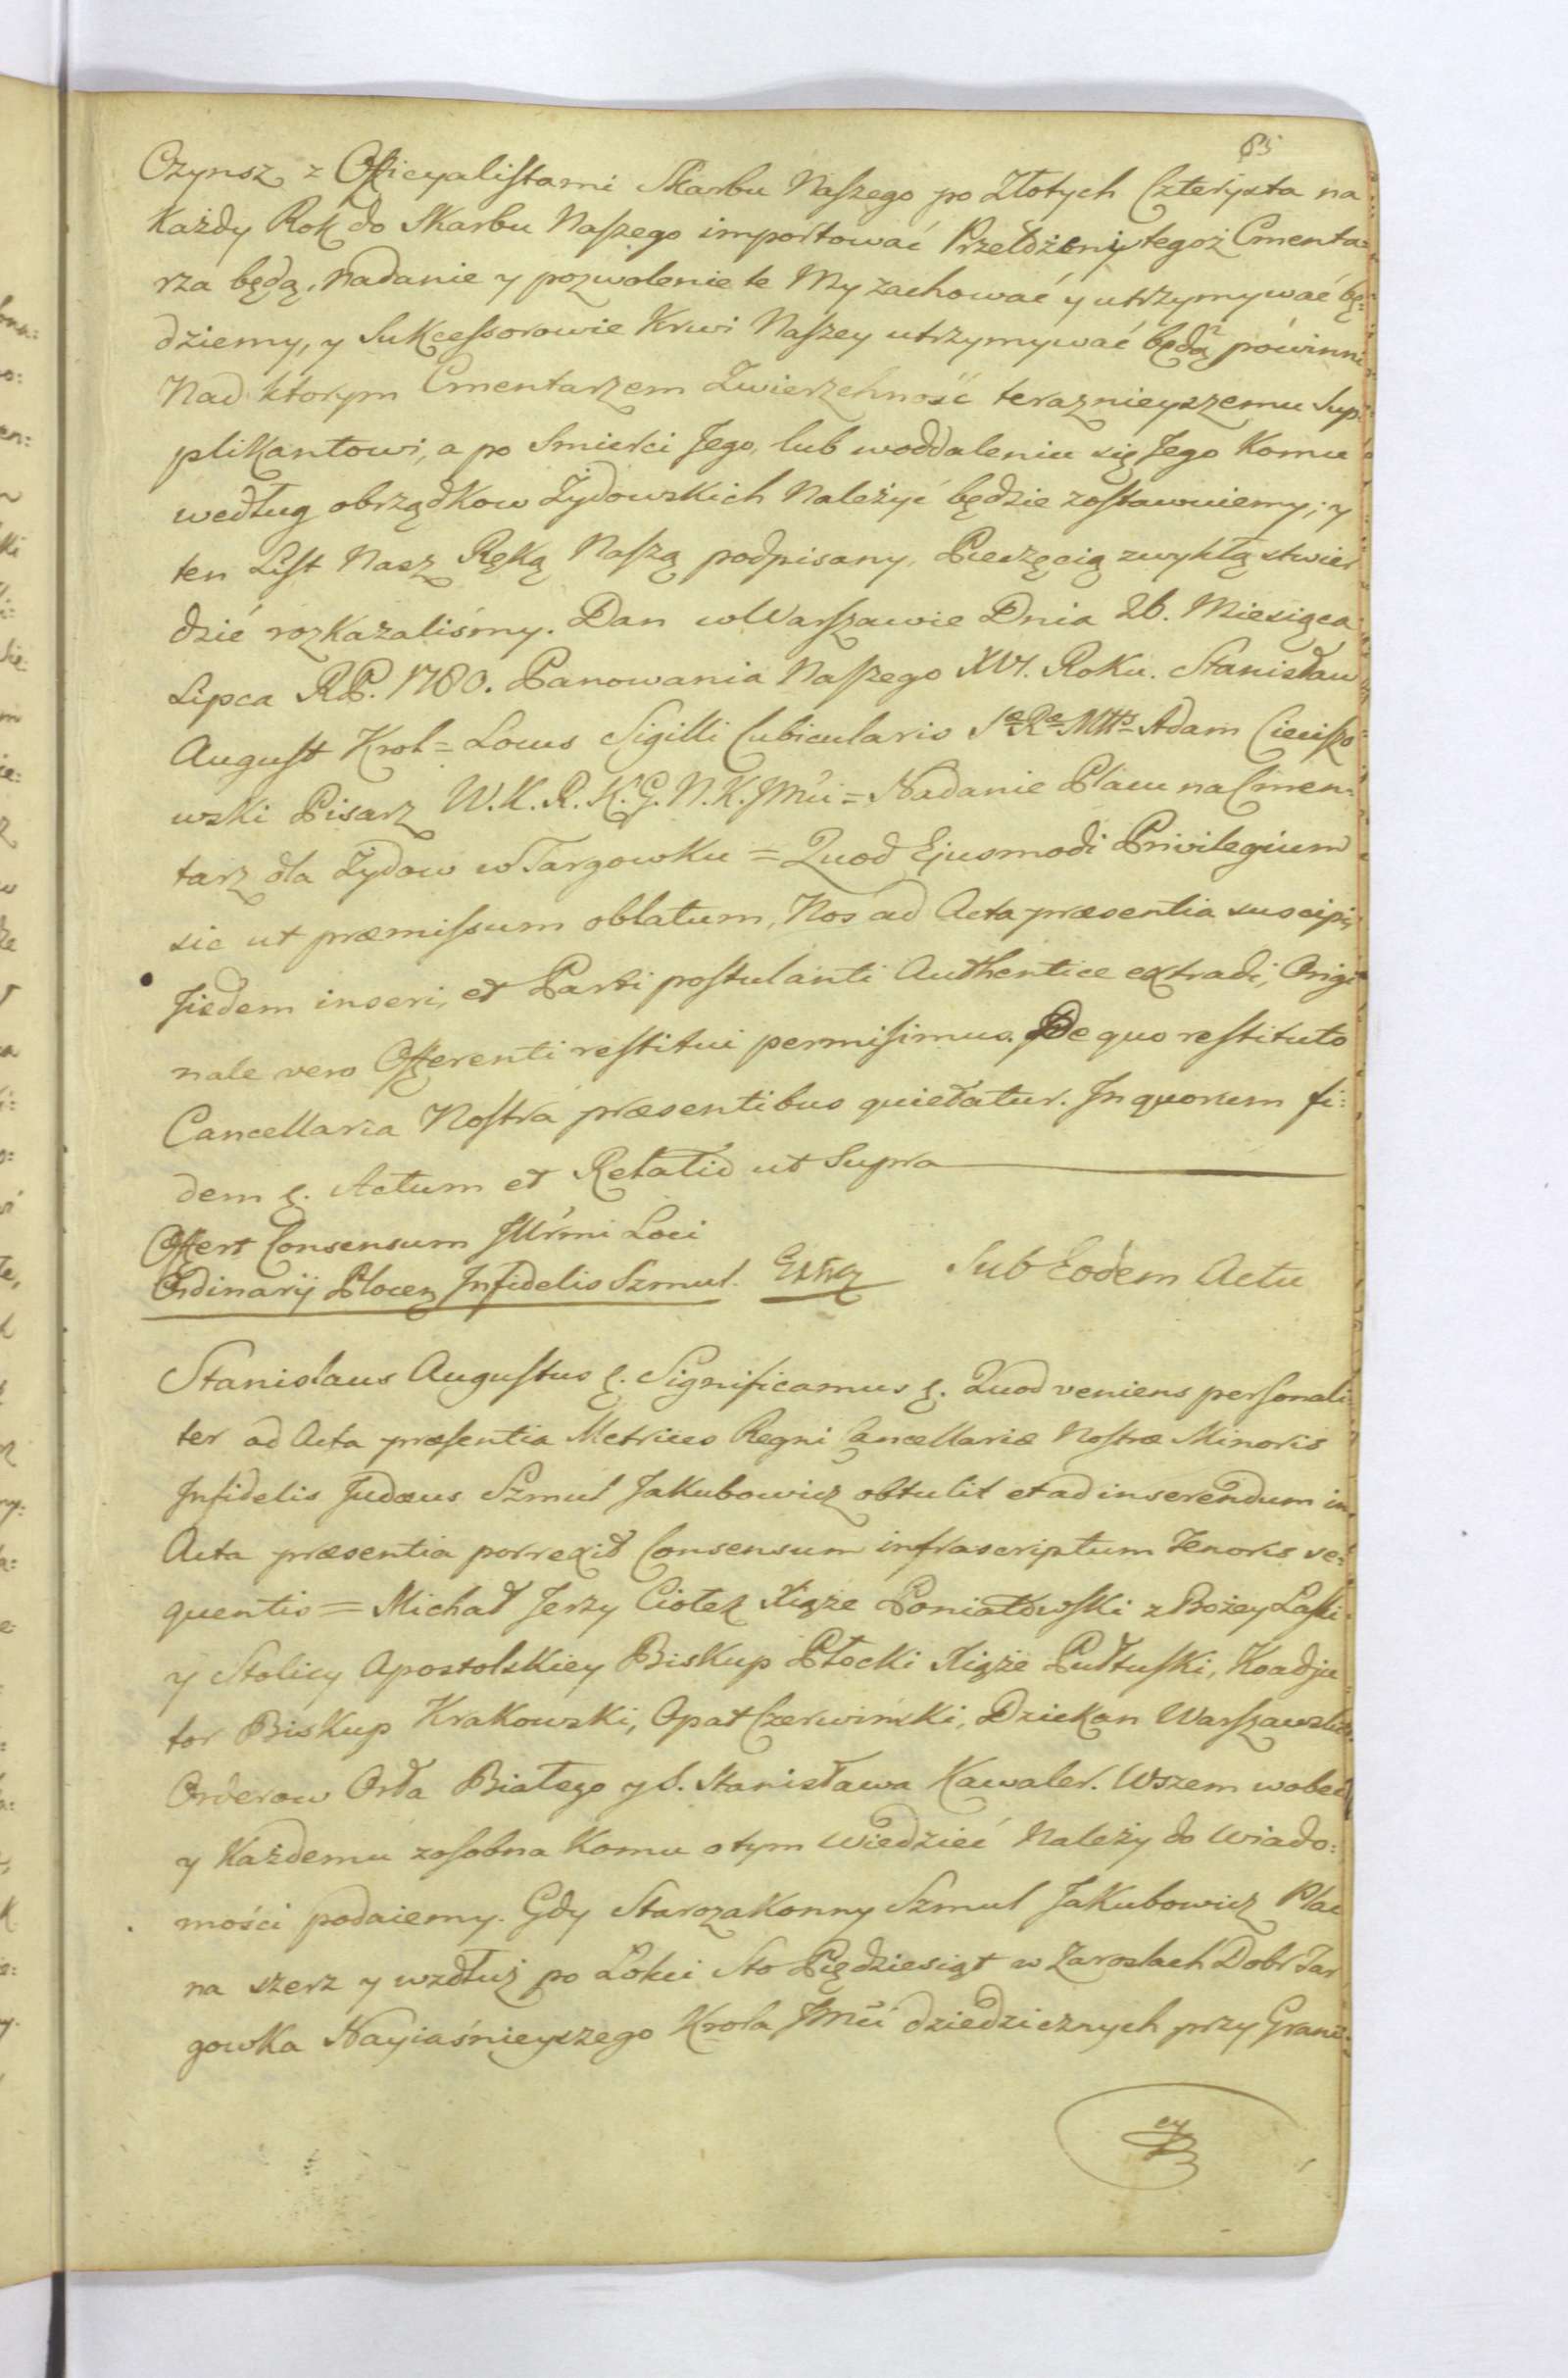 65
Czynsz z Officyalistami Skarbu Naszego po Złotych Czterysta na
każdy Rok do Skarbu Naszego importować Przełożeni tegoż Cmenta=
rza będą, Nadanie y pozwolenie te My zachować y utrzymywać bę=
dziemy, y Sukcessorowie Krwi Naszey utrzymywać będą powinni
Nad ktorym Cmentarzem Zwierzchność teraznieyszemu Sup=
plikantowi, a po Smierci Jego, lub woddaleniu się Jego komu
według obrządkow Żydowskich Należyć będzie zostawuiemy; y
ten List Nasz Ręką Naszą podpisany, Pieczęcią zwykłą stwier
dzić rozkazaliśmy. Dan w Warszawie Dnia 26. Miesiąca
Lipca RP. 1780. Panowania Naszego XVI. Roku. Stanisław
August Krol = Locus Sigilli Cubicularis Adam Cieciszo=
wski Pisarz W. K. R. K. G. N. K. JMci = Nadanie Placu na Cmen=
tarz dla Żydow w Targowku = Quod Ejusmodi Privilegium
sic ut præmissum oblatum, Nos ad Acta præsentia suscipi,
Jisdem inseri, et Parti postulanti Authentice extradi, Origi
nale vero Offerenti restitui permisimus. De quo restituto
Cancellaria Nostra præsentibus quietatur. In quorum fi=
dem &. Actum et Relatio ut Supra
Offert Consensum Illrmi Loci
Ordinarij Plocen Infidelis Szmul. Sub Eodem Actu
Stanislaus Augustus &. Significamus &. Quod veniens personali
ter ad Acta præsentia Metrices Regni Cancellariæ Nostræ Minoris
Infidelis Judæus Szmul Jakubowicz obtulit et ad inserendum in
Acta præsentia porrexit Consensum infrascriptum Tenoris se=
quentis = Michał Jerzy Ciołek Xiąże Poniatowski z Bożey Łaski
y Stolicy Apostolskiey Biskup Płocki Xiąże Pułtuski, Koadju
tor Biskup Krakowski, Opat Czerwiński, Dziekan Warszawski
Orderow Orła Białego y S. Stanisława Kawaler. Wszem wobec
y Każdemu zosobna Komu o tym Wiedzieć Należy do Wiado=
mości podaiemy. Gdy Starozakonny Szmul Jakubowicz Plac
na szerz y wzdłuż po Łokci Sto Pięćdziesiąt w Zaroslach Dobr Tar
gowka Nayiaśnieyszego Krola JMci dziedzicznych przy Grani=